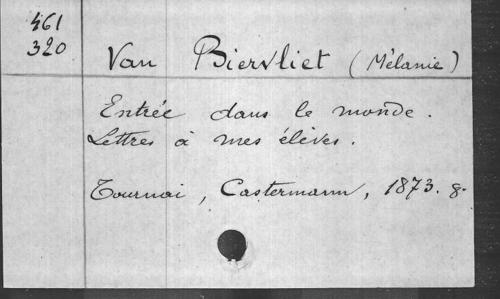 461
320
Van Biervliet (Mélanie)
Entrée dans le monde.
Lettres à mes élèves.
Tournai, Castermann, 1873. 8.